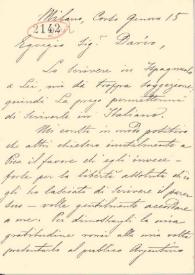 Milano, Corso Genova 15
2142
Egregio Sig. Darío,
Lo scrivere in Spagnuolo
a Lei, mi dà troppa soggezione,
quindi La prego permettermi
di scriverle in Italiano.
Mi consta in modo positivo
che altri chiesero inutilmente a
Lei il favore che egli invece
forse per la libertà assoluta di
gli ha lasciato di scrivere il
suo volle gentilmente accordare
a me. Per dimostrargli la mia
gratitudine vorrei alla mia volta
presentarlo al pubblico Argentino